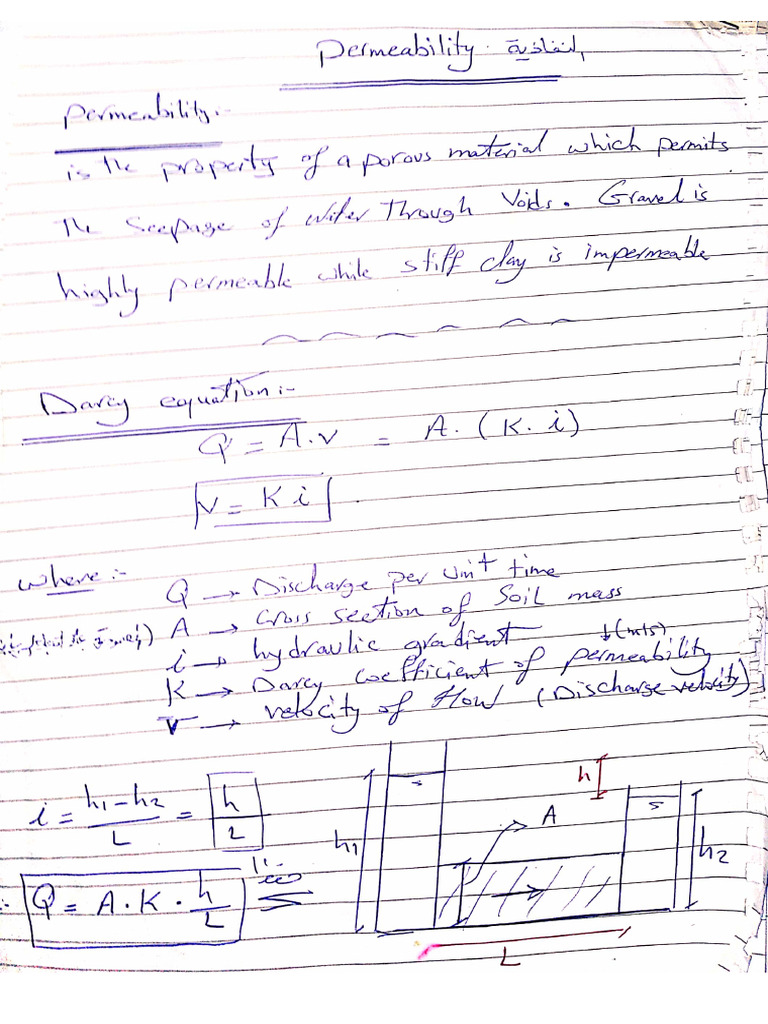 Permeability النفاذية
Permeability:-
is the property of a porous material which permits
the seepage of water Through Voids. Gravel is
highly permeable while stiff clay is impermeable
Darcy equation:-
Q = A.v = A. (K. i)
v = K i
where:-
Q → Discharge per unit time
A → Cross section of Soil mass
i → hydraulic gradient
↓(m/s)
K → Darcy coefficient of permeability
v → velocity of flow (Discharge velocity)
i = h1-h2 / L = h / 2
Q = A.K. h / L
h1
A
h
h2
L